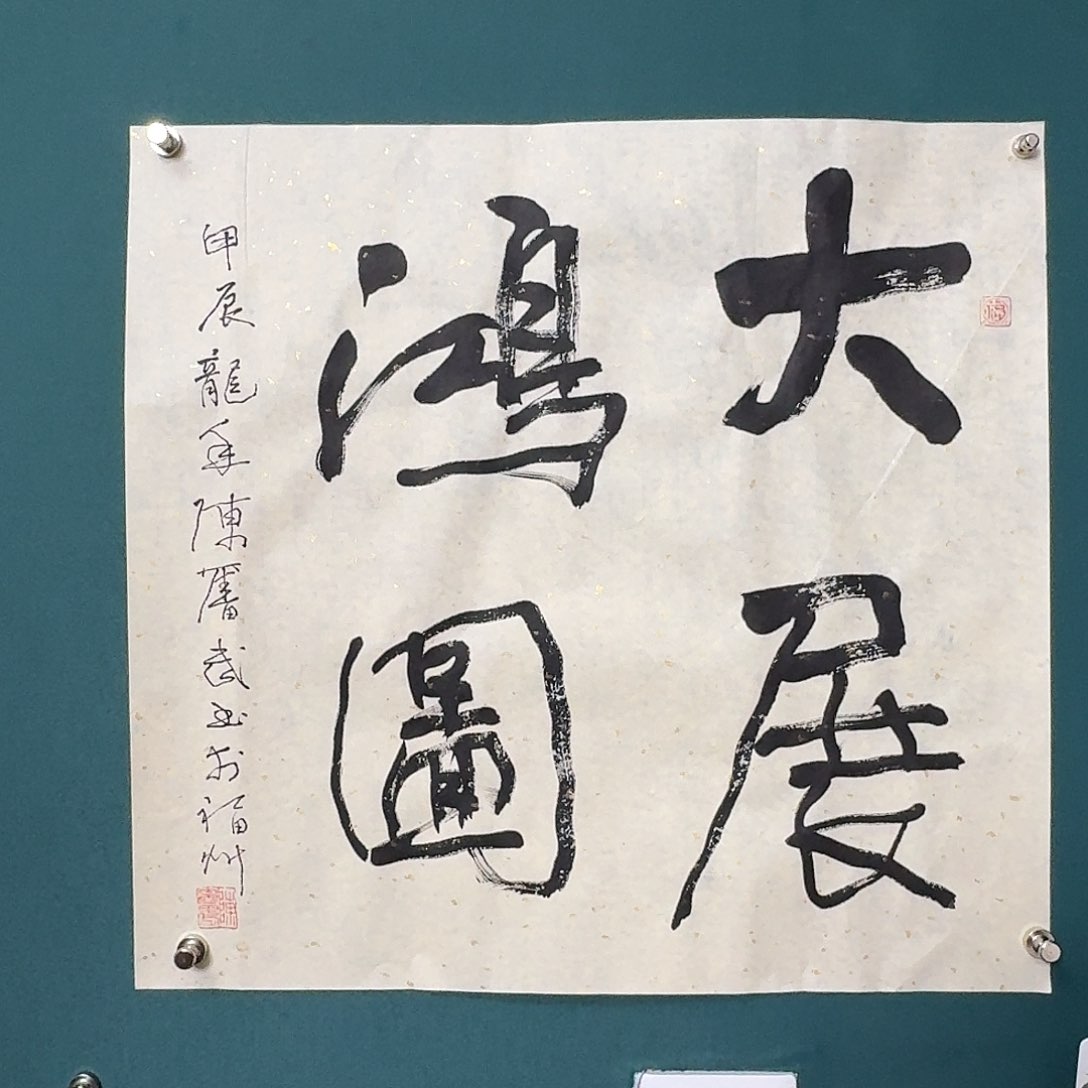 大展
鴻圖
甲辰龍年陳篤武书於福州